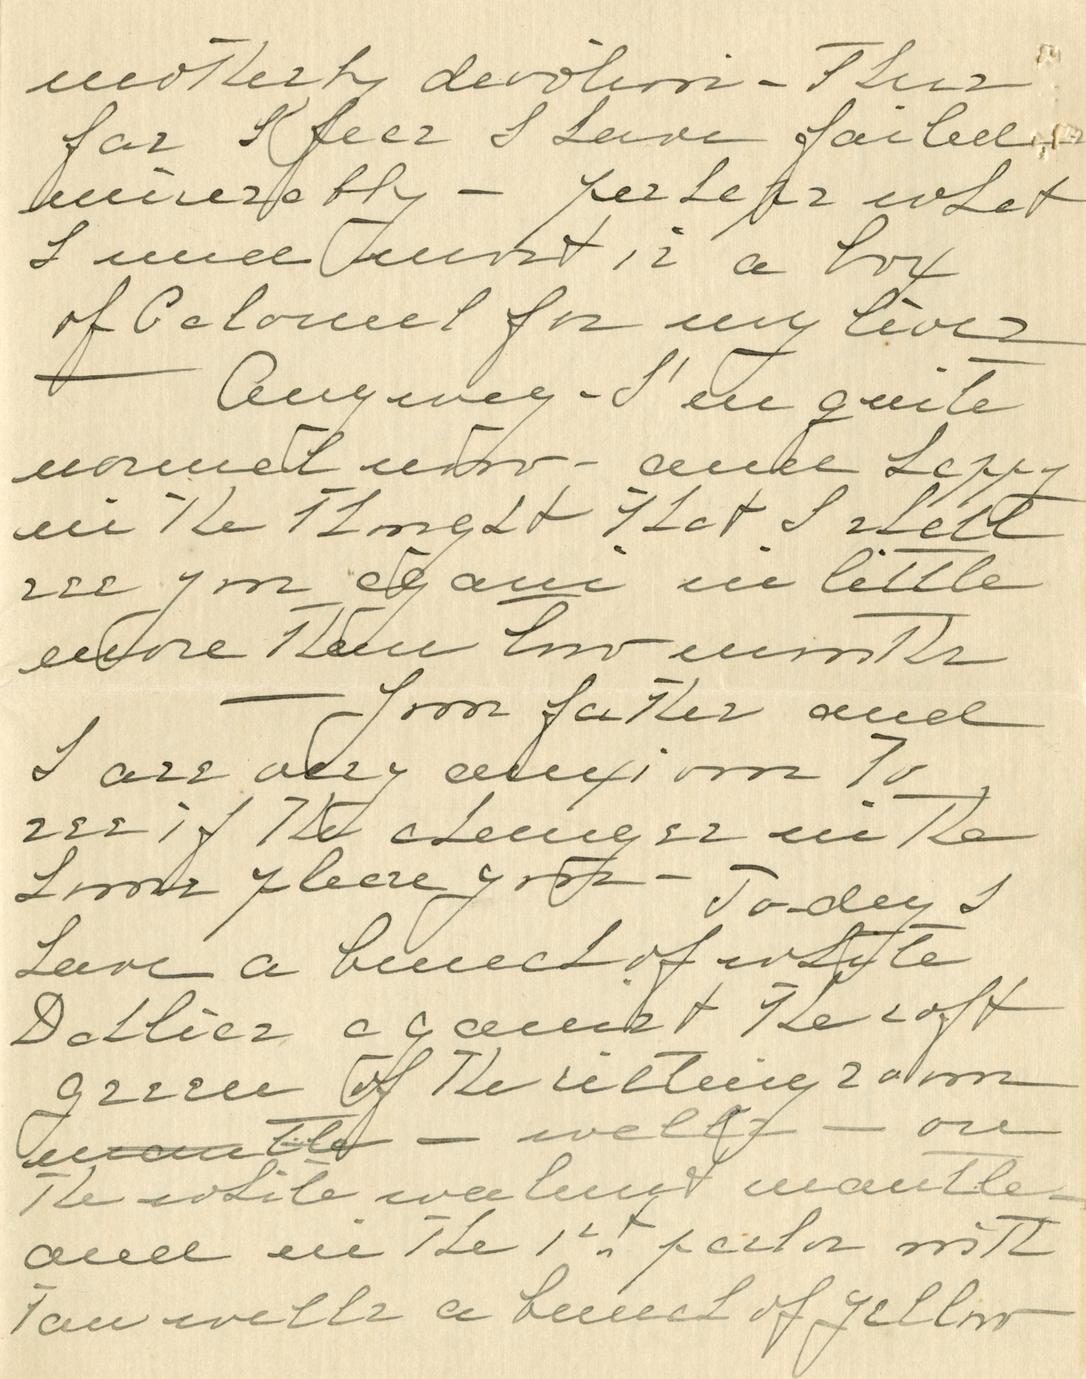 motherly devotion - Thus
far I fear I have failed
miserably - perhaps what
I need most is a box
of Calomel for my liver
— Anyway - I'm quite
normal now - and happy
in the thought that I shall
see you again in little
more than two months
— Your father and
I are very anxious to
see if the changes in the
house please you - To-day I
have a bunch of white
Dahlias against the soft
green of the sitting room
mantle — walls — on
the white walnut mantle -
and in the 1st parlor with
tan walls a bunch of yellow